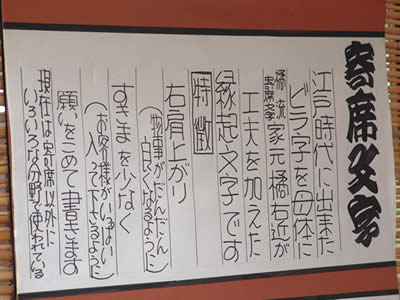 寄席文字
江戸時代に出来た
ビラ字を母体に
橘流寄席文字家元橘右近が
工夫を加えた
縁起文字です
特徴
右肩上がり
(物事がだんだん
良くなるように)
すきまを少なく
(お客様がいっぱい
入って下さるように)
願いをこめて書きます
現在は寄席以外に
いろいろな分野で使われている